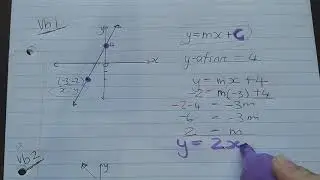 Vb 1
y
4
x
(-3,-2)
x y
y = mx + C
y-afsn = 4
y = mx + 4
-2 = m(-3) + 4
-2-4 = -3m
-6 = -3m
2 = m
y = 2x
Vb 2
y